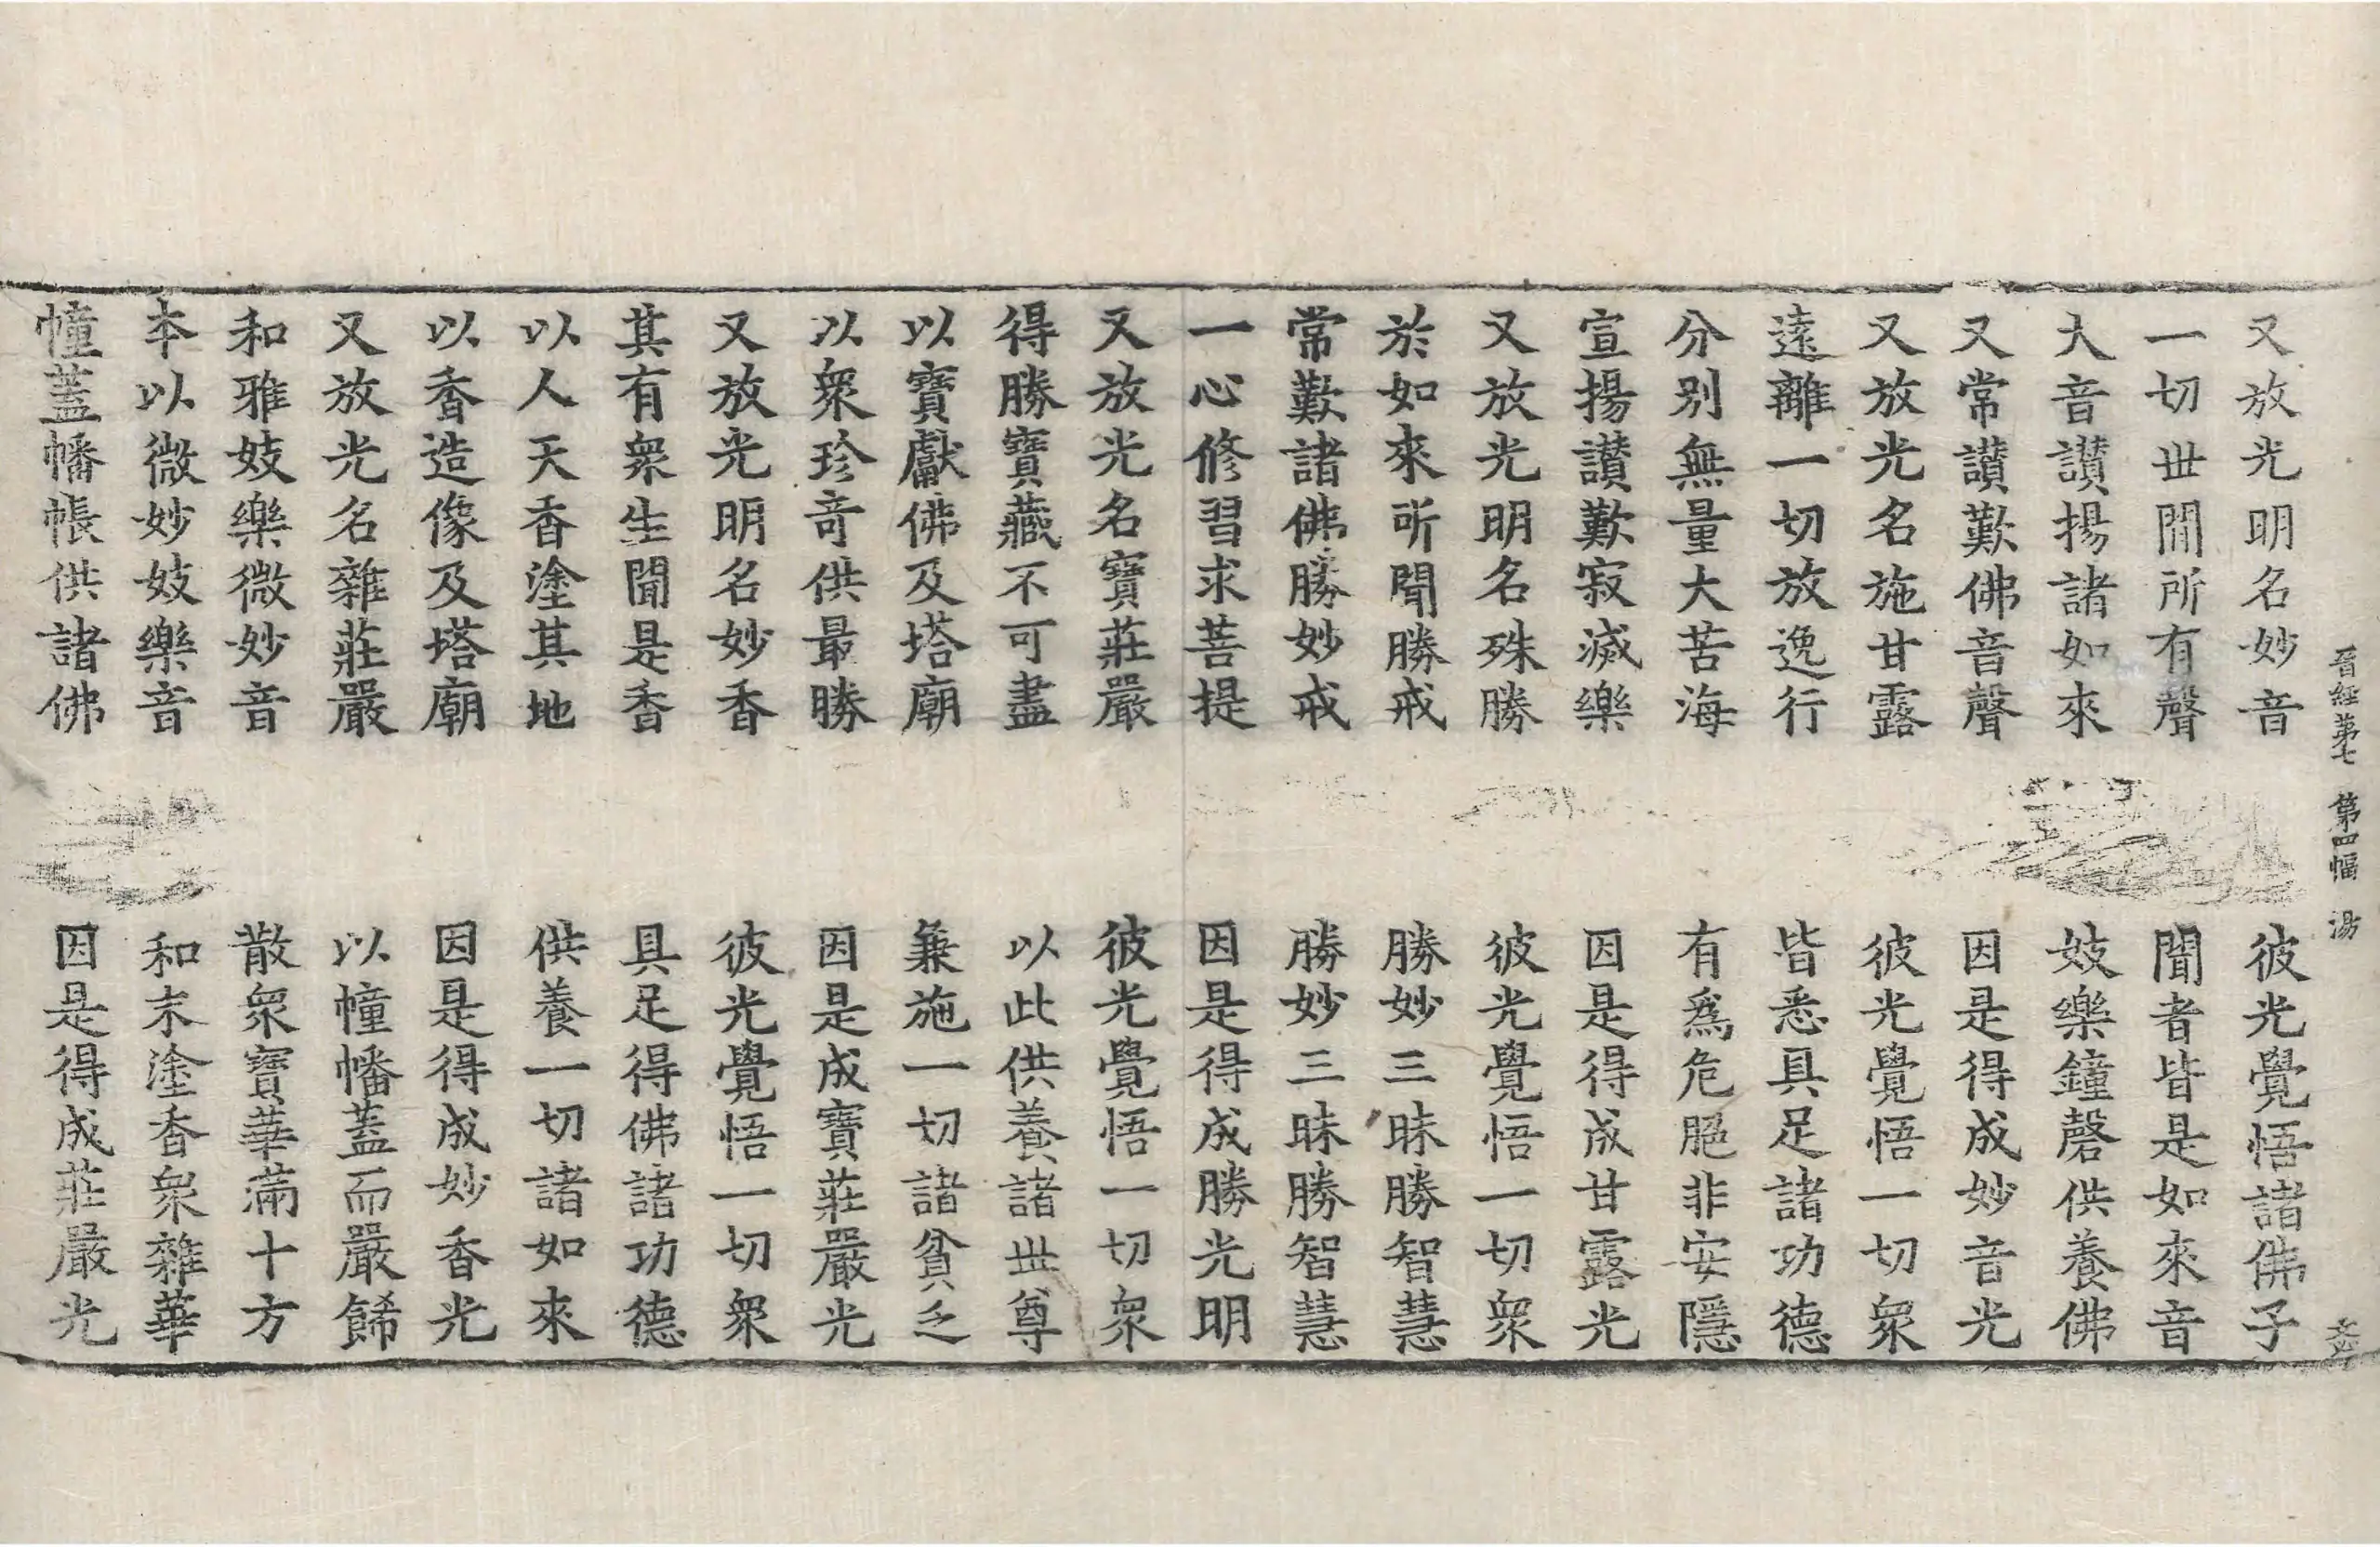 晉經第七 第四幅 湯
又放光明名妙音 彼光覺悟諸佛子
一切世間所有聲 聞者皆是如來音
大音讃揚諸如來 妓樂鐘磬供養佛
又常讃歎佛音聲 因是得成妙音光
又放光名施甘露 彼光覺悟一切衆
遠離一切放逸行 皆悉具足諸功德
分別無量大苦海 有爲危脆非安隱
宣揚讃歎寂滅樂 因是得成甘露光
又放光明名殊勝 彼光覺悟一切衆
於如來所聞勝戒 勝妙三昧勝智慧
常歎諸佛勝妙戒 勝妙三昧勝智慧
一心修習求菩提 因是得成勝光明
又放光名寶莊嚴 彼光覺悟一切衆
得勝寶藏不可盡 以此供養諸世尊
以寶獻佛及塔廟 兼施一切諸貧乏
以衆珍奇供最勝 因是成寶莊嚴光
又放光明名妙香 彼光覺悟一切衆
其有衆生聞是香 具足得佛諸功德
以人天香塗其地 供養一切諸如來
以香造像及塔廟 因是得成妙香光
又放光名雜莊嚴 以幢幡蓋而嚴餙
和雅妓樂微妙音 散衆寶華滿十方
本以微妙妓樂音 和末塗香衆雜華
幢蓋幡帳供諸佛 因是得成莊嚴光